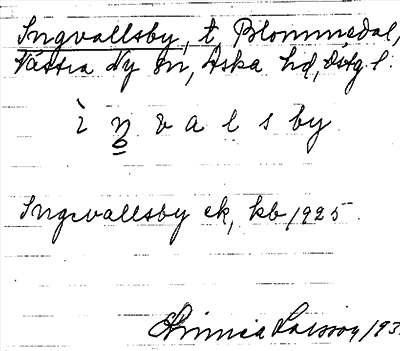 Ingvallsby, t. Blommedal,
Västra Ny sn, Aska hd, Östg l.
ì ŋ v a l s by
Ingevallsby ek, kb 1925.
Larsson 193